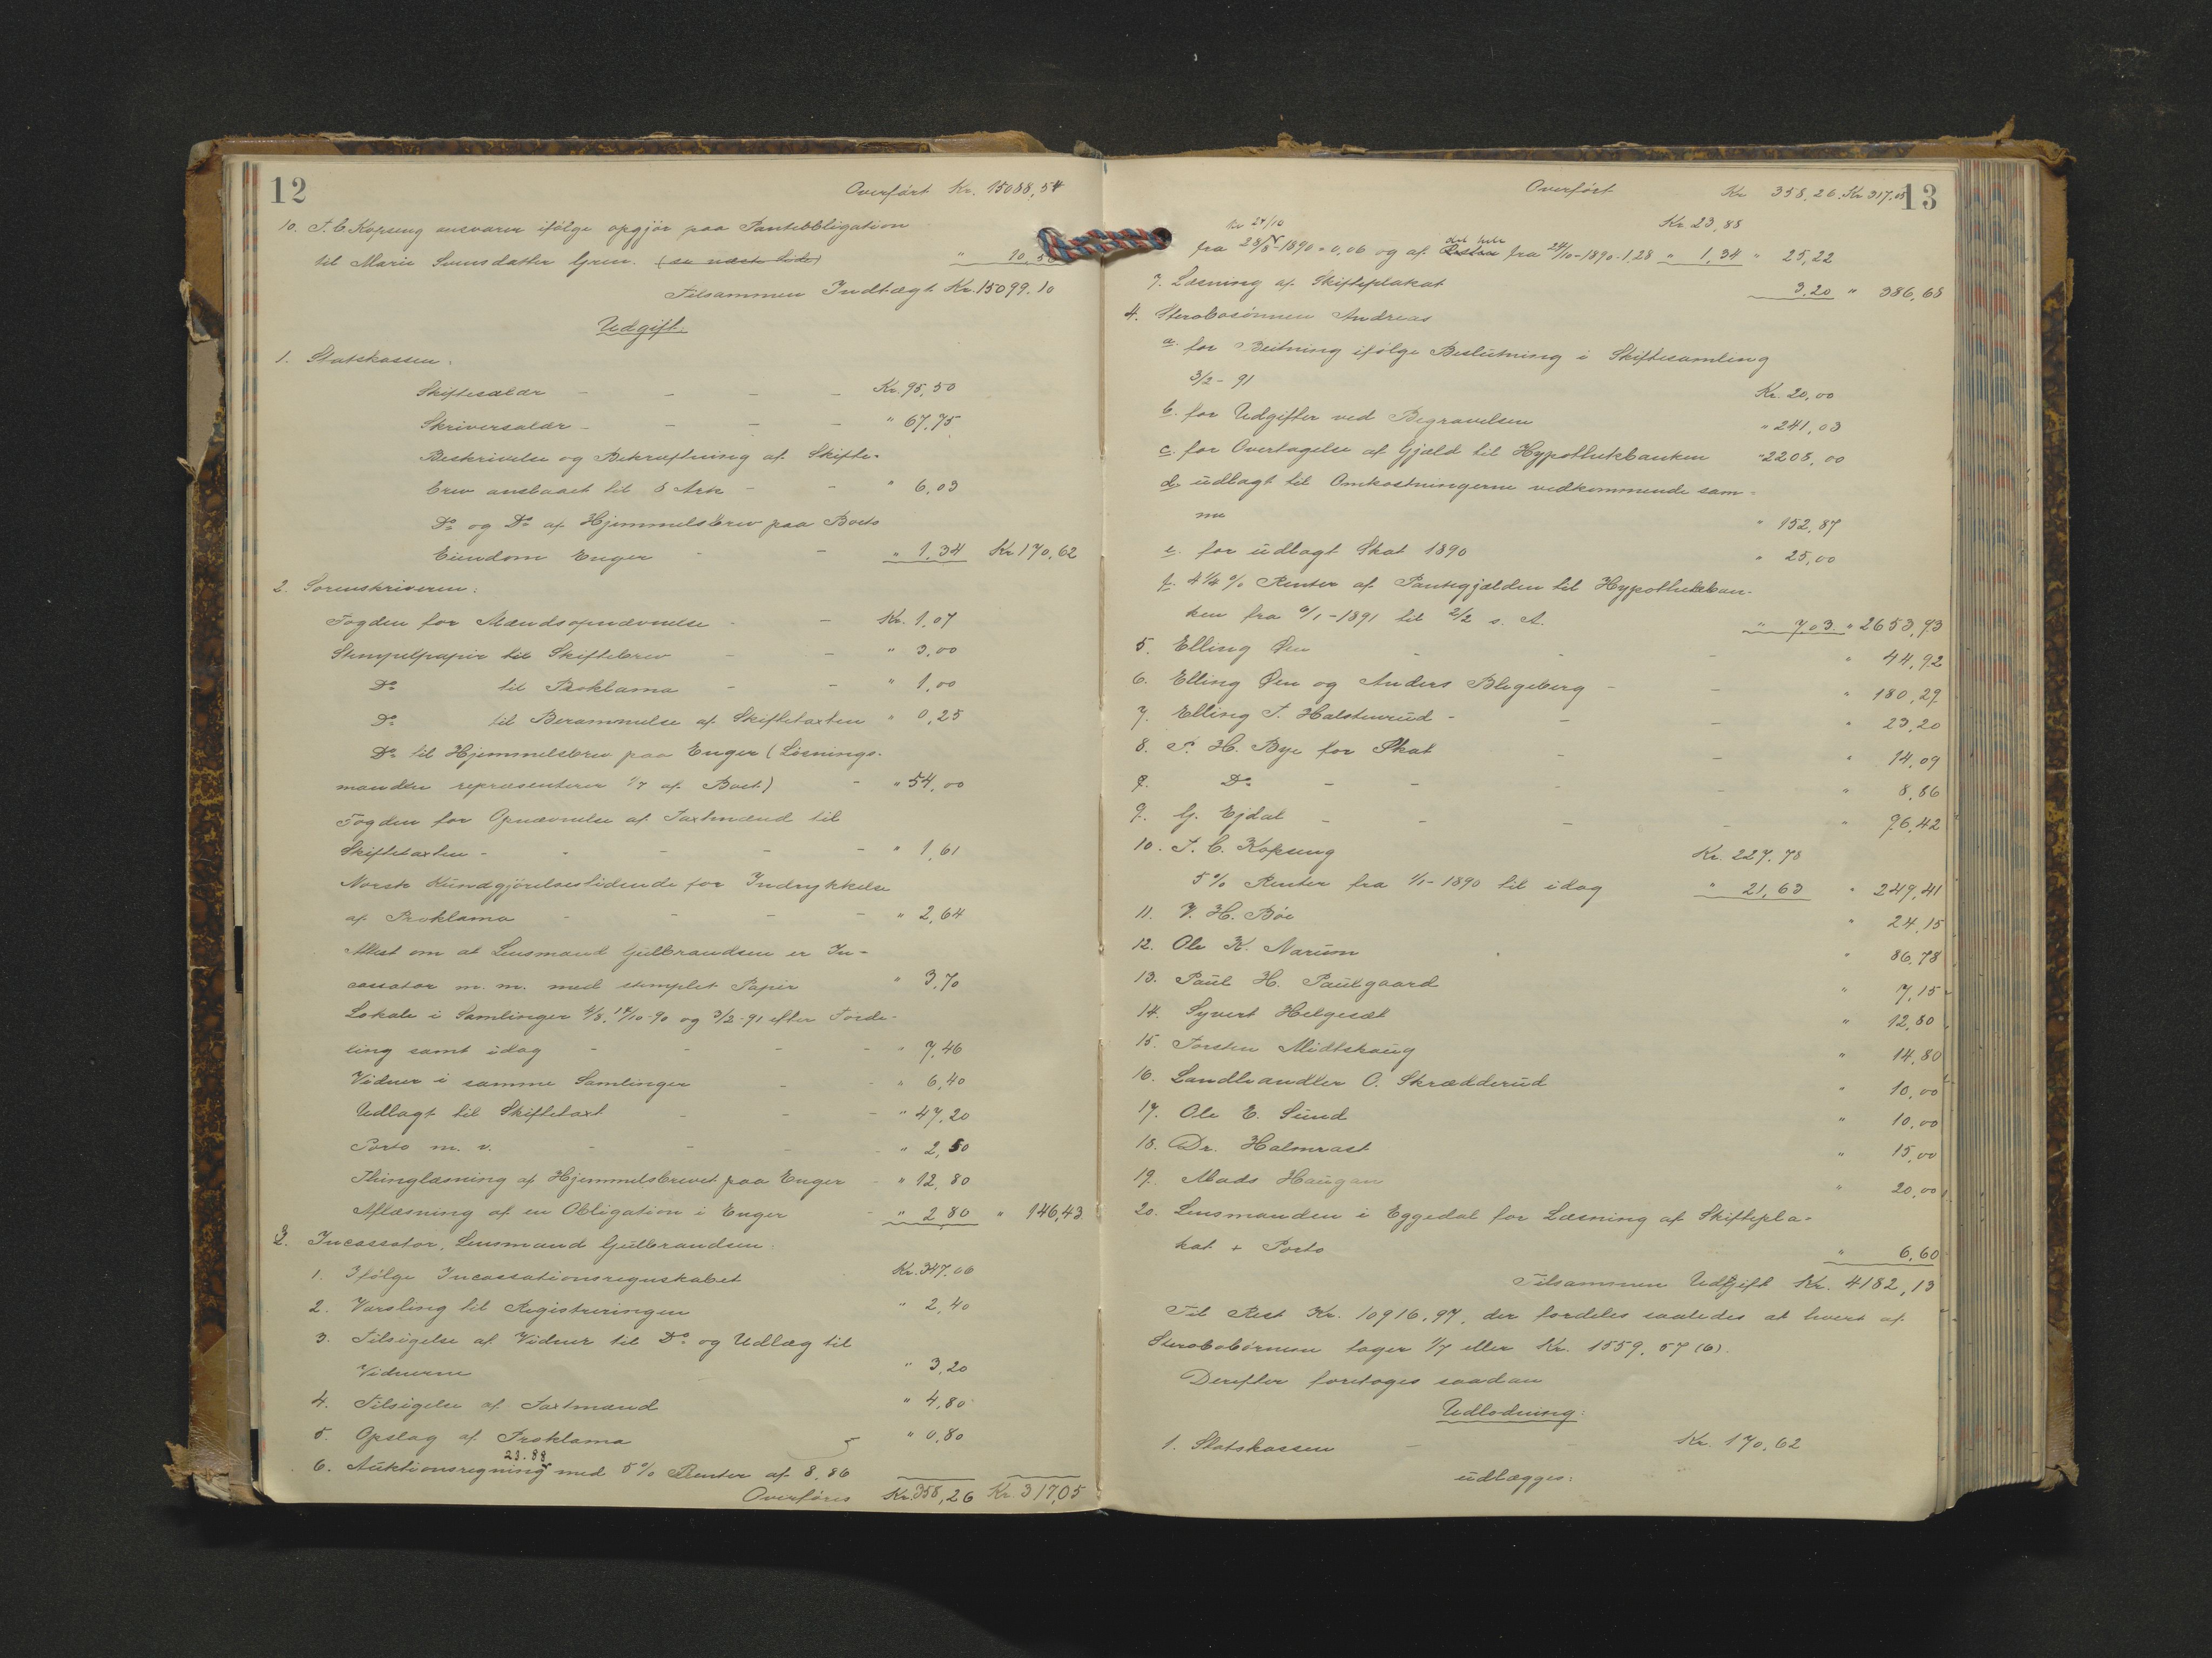 12
Overført Kr. 15088,54
10. T. C. Kopseng ansvarer ifølge opgjør paa Pantobligation
til Marie Svensdatter Gren. (se næste Side) " 10,5
Tilsammen Indtægt Kr. 15099.10
Udgift.
1. Statskassen.
Skiftesalær - - - - Kr. 95,50
Skriversalær - - - - " 67,75
Beskrivelse og Bekræftning af Skifte-
brev anslaaet til 8 Ark - - " 6,03
Do og Do af Hjemmelsbrev paa Boets
Eiendom Enger - - " 1,34 Kr 170,62
2. Sorenskriveren:
Fogden for Mandsopnævnelse - - Kr. 1,07
Stempelpapir til Skiftebrev - - " 3,00
Do til Proklama - - " 1,00
Do til Berammelse af Skiftetaxten " 0,25
Do til Hjemmelsbrev paa Enger (Løsnings-
manden repræsenterer 1/7 af Boet) - " 54,00
Fogden for Opnævnelse af Taxtmænd til
Skiftetaxten - - - - - " 1,61
Norsk Kundgjørelsestidende for Indrykkelse
af Proklama - - - - " 2,64
Attest om at Lensmand Gulbrandsen er In-
cassator m. m. med stemplet Papir " 3,70
Lokale i Samlinger 4/8, 14/10-90 og 3/2-91 efter Forde-
ling samt idag - - - - " 7,46
Vidner i samme Samlinger - - " 6,40
Udlagt til Skiftetaxt - - - " 47,20
Porto m. v. - - - - " 2,50
Thinglæsning af Hjemmelsbrevet paa Enger - " 12,80
Aflæsning af en Obligation i Enger - " 2,80 " 146,43
3. Incassator, Lensmand Gulbrandsen:
1. Ifølge Incassationsregnskabet Kr. 347.06
2. Varsling til Registreringen " 2,40
3. Tilsigelse af Vidner til Do og Udlæg til
Vidnerne " 3,20
4. Tilsigelse af Taxtmænd " 4,80
5. Opslag af Proklama " 0,80
23.88
6. Auktionsregning med 5 % Renter af 8,86
Overføres Kr. 358,26 Kr. 317,05
13
Overført Kr 358,26. Kr 317,05
24/10 Kr 23,88
fra 28/8-1890 = 0,06 og af det hele Resten fra 24/10-1890-1,28 " 1,34 " 25,22
7. Læsning af Skifteplakat 3,20 " 386,68
4. Sterbosønnen Andreas
a. for Beitning ifølge Beslutning i Skiftesamling
3/2-91 Kr. 20,00
b. for Udgifter ved Begravelsen " 241,03
c. for Overtagelse af Gjæld til Hypothekbanken " 2208,00
d. udlagt til Omkostningerne vedkommende sam-
me " 152,87
e. for udlagt Skat 1890 " 25,00
f. 4 1/4 % Renter af Pantegjælden til Hypothekban-
ken fra 6/1-1891 til 2/2 s. A. " 7,03. " 2653,93
5. Elling Øen - - - " 44,92
6. Elling Øen og Anders Bligeberg - - " 180,29
7. Elling T. Halstenrud - - - " 23,20
8. P. H. Bye for Skat - - " 14,09
9. Do - - - - " 8,86
9. G. Ejdal - - - - " 96,42
10. T. C. Kopseng Kr. 227.78
5 % Renter fra 1/1-1890 til idag " 21,63 " 249,41
11. V. H. Bøe " 24,15
12. Ole K. Narum " 86,78
13. Paul H. Paulgaard " 7,15
14. Syvert Helgeset " 12,80
15. Torsten Midtskoug " 14,80
16. Landhandler O. Skrædderud " 10,00
17. Ole E. Sund " 10,00
18. Dr. Halmrast " 15,00
19. Mads Haugan " 20,00
20. Lensmanden i Eggedal for Læsning af Skiftepla-
kat + Porto " 6,60
Tilsammen Udgift Kr. 4182,13
Til Rest Kr. 10916,97, der fordeles saaledes at hvert af
Sterbobørnene tager 1/7 eller Kr. 1559.57 (6).
Derefter foretoges saadan
Udlodning:
1. Statskassen - - Kr. 170,62
udlægges: